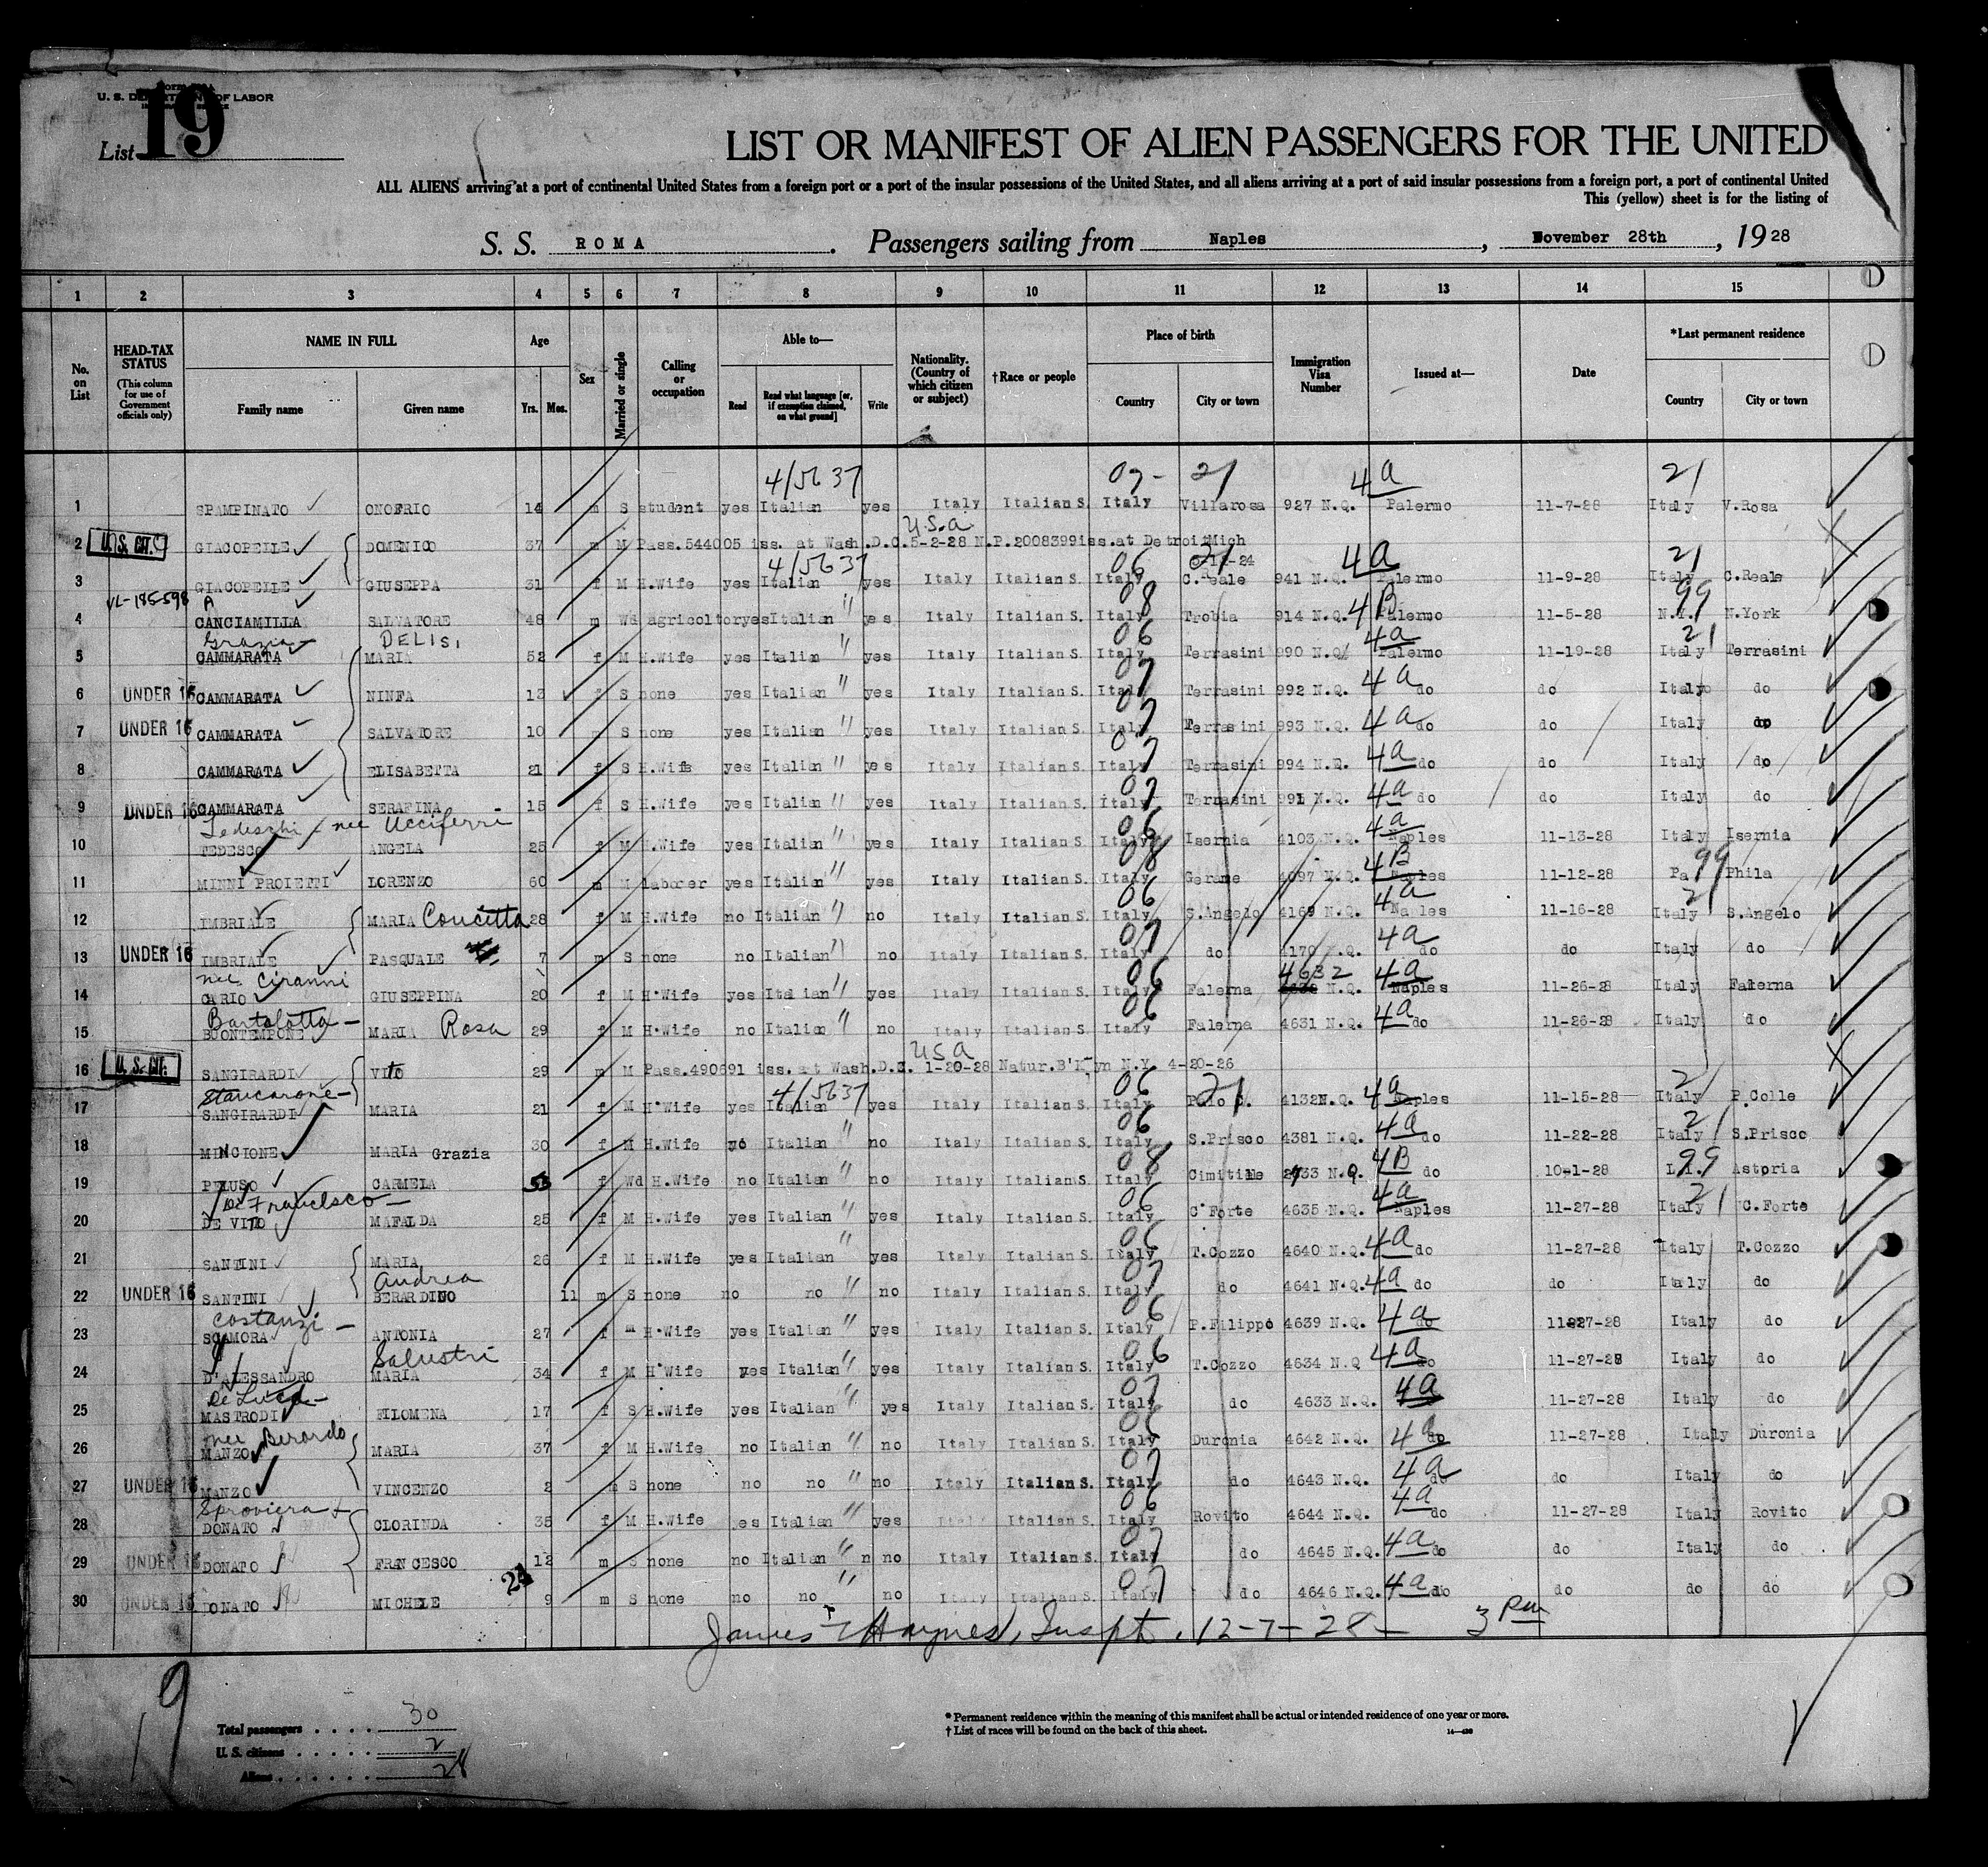 U. S. DEPARTMENT OF LABOR
List 19
LIST OR MANIFEST OF ALIEN PASSENGERS FOR THE UNITED
ALL ALIENS arriving at a port of continental United States from a foreign port or a port of the insular possessions of the United States, and all aliens arriving at a port of said insular possessions from a foreign port, a port of continental United
This (yellow) sheet is for the listing of
S. S. ROMA. Passengers sailing from Naples, November 28th, 1928
1 2 3 4 5 6 7 8 9 10 11 12 13 14 15
No. on List
HEAD-TAX STATUS (This column for use of Government officials only)
NAME IN FULL Family name Given name
Age Yrs. Mos.
Sex
Married or single
Calling or occupation
Able to— Read Read what language [or, if exemption claimed, on what ground] Write
Nationality. (Country of which citizen or subject)
†Race or people
Place of birth Country City or town
Immigration Visa Number
Issued at—
Date
*Last permanent residence Country City or town
4/5637 07- 21 4a 21
1 SPAMPINATO ONOFRIO 14 m S student yes Italian yes Italy Italian S. Italy Villarosa 927 N.Q. Palermo 11-7-28 Italy V.Rosa
U.S.a
2 U. S. CIT. GIACOPELLE DOMENICO 37 m M Pass.544005 iss. at Wash.D.C.5-2-28 N.P.2008399iss.at Detroit Mich
4/5637 06 21 4a 21
3 GIACOPELLE GIUSEPPA 31 f M H.Wife yes Italian yes Italy Italian S. Italy C.Reale 941 N.Q. Palermo 11-9-28 Italy C.Reale
VL-185-598 A 08 4B 99
4 CANCIAMILLA SALVATORE 48 m Wd agricoltor yes Italian " yes Italy Italian S. Italy Trobia 914 N.Q. Palermo 11-5-28 N.Y. N.York
Grazia DELISI 06 4a 21
5 CAMMARATA MARIA 52 f M H.Wife yes Italian " yes Italy Italian S. Italy Terrasini 990 N.Q. Palermo 11-19-28 Italy Terrasini
6 UNDER 16 CAMMARATA NINFA 13 f S none yes Italian " yes Italy Italian S. Italy 07 Terrasini 992 N.Q. 4a do do Italy do
7 UNDER 16 CAMMARATA SALVATORE 10 m S none yes Italian " yes Italy Italian S. Italy 07 Terrasini 993 N.Q. 4a do do Italy do
8 CAMMARATA ELISABETTA 21 f S H.Wife yes Italian " yes Italy Italian S. Italy 07 Terrasini 994 N.Q. 4a do do Italy do
9 UNDER 16 CAMMARATA SERAFINA 15 f S H.Wife yes Italian " yes Italy Italian S. Italy 07 Terrasini 991 N.Q. 4a do do Italy do
Tedeschi nee Ucciferri 06 4a
10 TEDESCO ANGELA 25 f M H.Wife yes Italian " yes Italy Italian S. Italy Isernia 4103 N.Q. Naples 11-13-28 Italy Isernia
08 4B 99
11 MINNI PROIETTI LORENZO 60 m M laborer yes Italian " yes Italy Italian S. Italy Gerane 4097 N.Q. Naples 11-12-28 Pa. Phila
06 4a 2
12 IMBRIALE MARIA Concetta 28 f M H.Wife no Italian " no Italy Italian S. Italy S.Angelo 4169 N.Q. Naples 11-16-28 Italy S.Angelo
07 4a
13 UNDER 16 IMBRIALE PASQUALE 7 m S none no Italian " no Italy Italian S. Italy do 4170 N.Q. do do Italy do
nee Ciranni 06 4632 4a
14 CARIO GIUSEPPINA 20 f M H.Wife yes Italian " yes Italy Italian S. Italy Falerna N.Q. Naples 11-26-28 Italy Falerna
Bartolotta 06 4a
15 BUONTEMPONE MARIA Rosa 29 f M H.Wife no Italian " no Italy Italian S. Italy Falerna 4631 N.Q. do 11-26-28 Italy do
USA
16 U. S. CIT. SANGIRARDI VITO 29 m M Pass.490691 iss. at Wash.D.C. 1-20-28 Natur.B'Lyn N.Y. 4-20-26
Stancarone 4/5637 06 21 4a 2
17 SANGIRARDI MARIA 21 f M H.Wife yes Italian yes Italy Italian S. Italy Palo C. 4132N.Q. Naples 11-15-28 Italy P.Colle
06 4a 21
18 MINCIONE MARIA Grazia 30 f M H.Wife no Italian " no Italy Italian S. Italy S.Prisco 4381 N.Q. do 11-22-28 Italy S.Prisco
08 4B 99
19 PELUSO CARMELA 53 f Wd H.Wife no Italian " no Italy Italian S. Italy Cimitile 2933 N.Q. do 10-1-28 L.I. Astoria
De Francisco 06 4a 21
20 DE VITO MAFALDA 25 f M H.Wife yes Italian " yes Italy Italian S. Italy C'Forte 4635 N.Q. Naples 11-27-28 Italy C.Forte
06 4a
21 SANTINI MARIA 26 f M H.Wife yes Italian " yes Italy Italian S. Italy T.Cozzo 4640 N.Q. do 11-27-28 Italy T.Cozzo
Andrea 07 4a
22 UNDER 16 SANTINI BERARDINO 11 m S none no no " no Italy Italian S. Italy do 4641 N.Q. do do Italy do
Costanzi 06 4a
23 SCAMORA ANTONIA 27 f m H.Wife yes Italian " yes Italy Italian S. Italy P.Filippo 4639 N.Q. do 11-27-28 Italy do
Salustri 06 4a
24 D'ALESSANDRO MARIA 34 f M H'Wife yes Italian " yes Italy Italian S. Italy T.Cozzo 4634 N.Q do 11-27-28 Italy do
De Luca 07 4a
25 MASTRODI FILOMENA 17 f S H.Wife yes Italian " yes Italy Italian S. Italy do 4633 N.Q. 11-27-28 Italy do
nee Berardo 06 4a
26 MANZO MARIA 37 f M H.Wife no Italian " no Italy Italian S. Italy Duronia 4642 N.Q. do 11-27-28 Italy Duronia
07 4a
27 UNDER 16 MANZO VINCENZO 2 m S none no no " no Italy Italian S. Italy do 4643 N.Q. do do Italy do
Sproviera 06 4a
28 DONATO CLORINDA 35 f M H.Wife yes Italian " yes Italy Italian S. Italy Rovito 4644 N.Q. do 11-27-28 Italy Rovito
07 4a
29 UNDER 16 DONATO FRANCESCO 12 m S none no Italian " n no Italy Italian S. Italy do 4645 N.Q. do do Italy do
24 07 4a
30 UNDER 16 DONATO MICHELE 9 m S none no no " no Italy Italian S. Italy do 4646 N.Q. do do do do
James T Haynes, Inspt. 12-7-28- 3 pm
19
Total passengers . . . . 30
U. S. citizens . . . . . 2
Aliens . . . . . . 28
* Permanent residence within the meaning of this manifest shall be actual or intended residence of one year or more.
† List of races will be found on the back of this sheet.